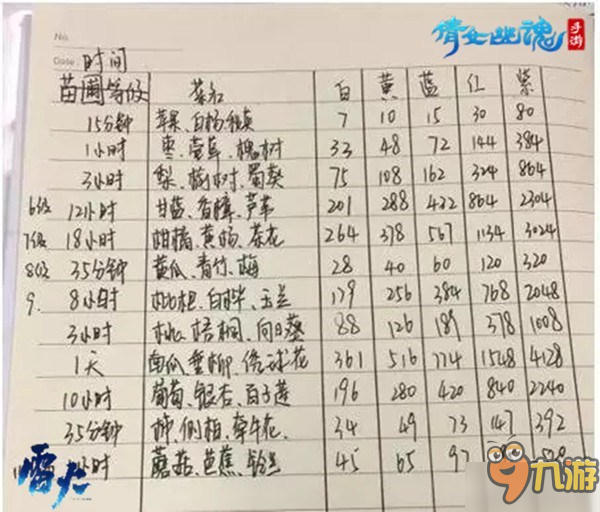 倩女幽魂手游
No.
Date 时间
苗圃等级 菜红 白 黄 蓝 红 紫
15分钟 苹果、白杨、 7 10 15 30 80
1小时 枣、萱草、槐树 33 48 72 144 384
3小时 梨、榆树、蜀葵 75 108 162 324 864
6级 12小时 甘蓝、香樟、芦苇 201 288 432 864 2304
7级 18小时 柑橘、黄杨、茶花 264 378 567 1134 3024
8级 35分钟 黄瓜、青竹、梅 28 40 60 120 320
9. 8小时 枇杷、白桦、玉兰 179 256 384 768 2048
3小时 桃、梧桐、向日葵 88 126 189 378 1008
1天 南瓜、垂柳、绣球花 361 516 774 1548 4128
10小时 葡萄、银杏、百子莲 196 280 420 840 2240
35分钟 柿、侧柏、牵牛花、 34 49 73 147 392
小时 蘑菇、芭蕉、铃兰 45 65 97
雷火
九游